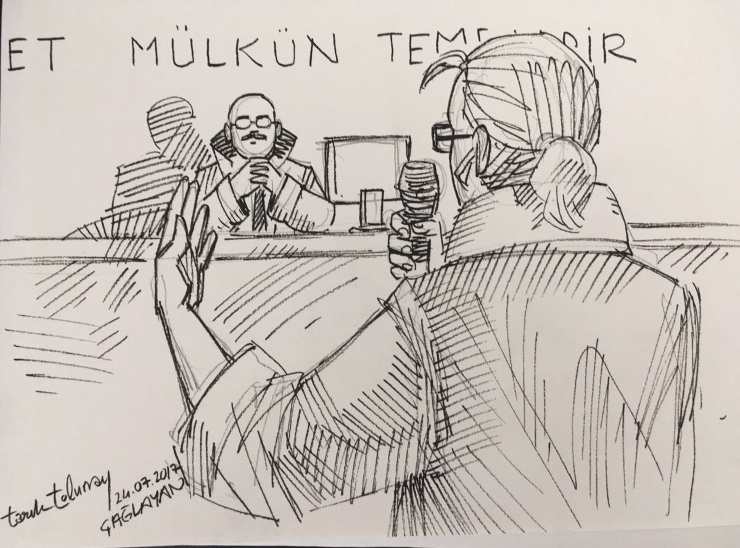 ET MÜLKÜN TEME DİR
tarık tolunay
24.07.2017
ÇAĞLAYAN